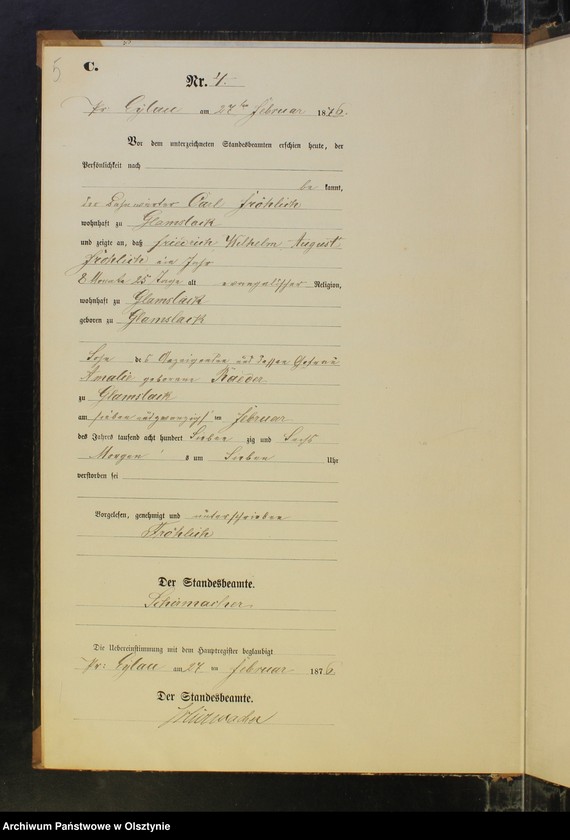 5
C.
Nr. 4.
Pr Eylau am 27ten Februar 1876.
Vor dem unterzeichneten Standesbeamten erschien heute, der
Persönlichkeit nach
be kannt,
der Bahnwärter Carl Fröhlich
wohnhaft zu Glamslack
und zeigte an, daß Friedrich Wilhelm August
Fröhlich ein Jahr
8 Monate 25 Tage alt evangelischer Religion,
wohnhaft zu Glamslack
geboren zu Glamslack
Sohn des Anzeigenden und dessen Ehefrau
Amalie geborene
zu Glamslack
am sieben und zwanzigsten Februar
des Jahres tausend acht hundert Sieben zig und Sechs
Morgen s um Sieben Uhr
verstorben sei
Vorgelesen, genehmigt und unterschrieben
Fröhlich
Der Standesbeamte.
Schumacher.
Die Uebereinstimmung mit dem Hauptregister beglaubigt
Pr: Eylau am 27 ten Februar 1876
Der Standesbeamte.
Schumacher
Archiwum Państwowe w Olsztynie